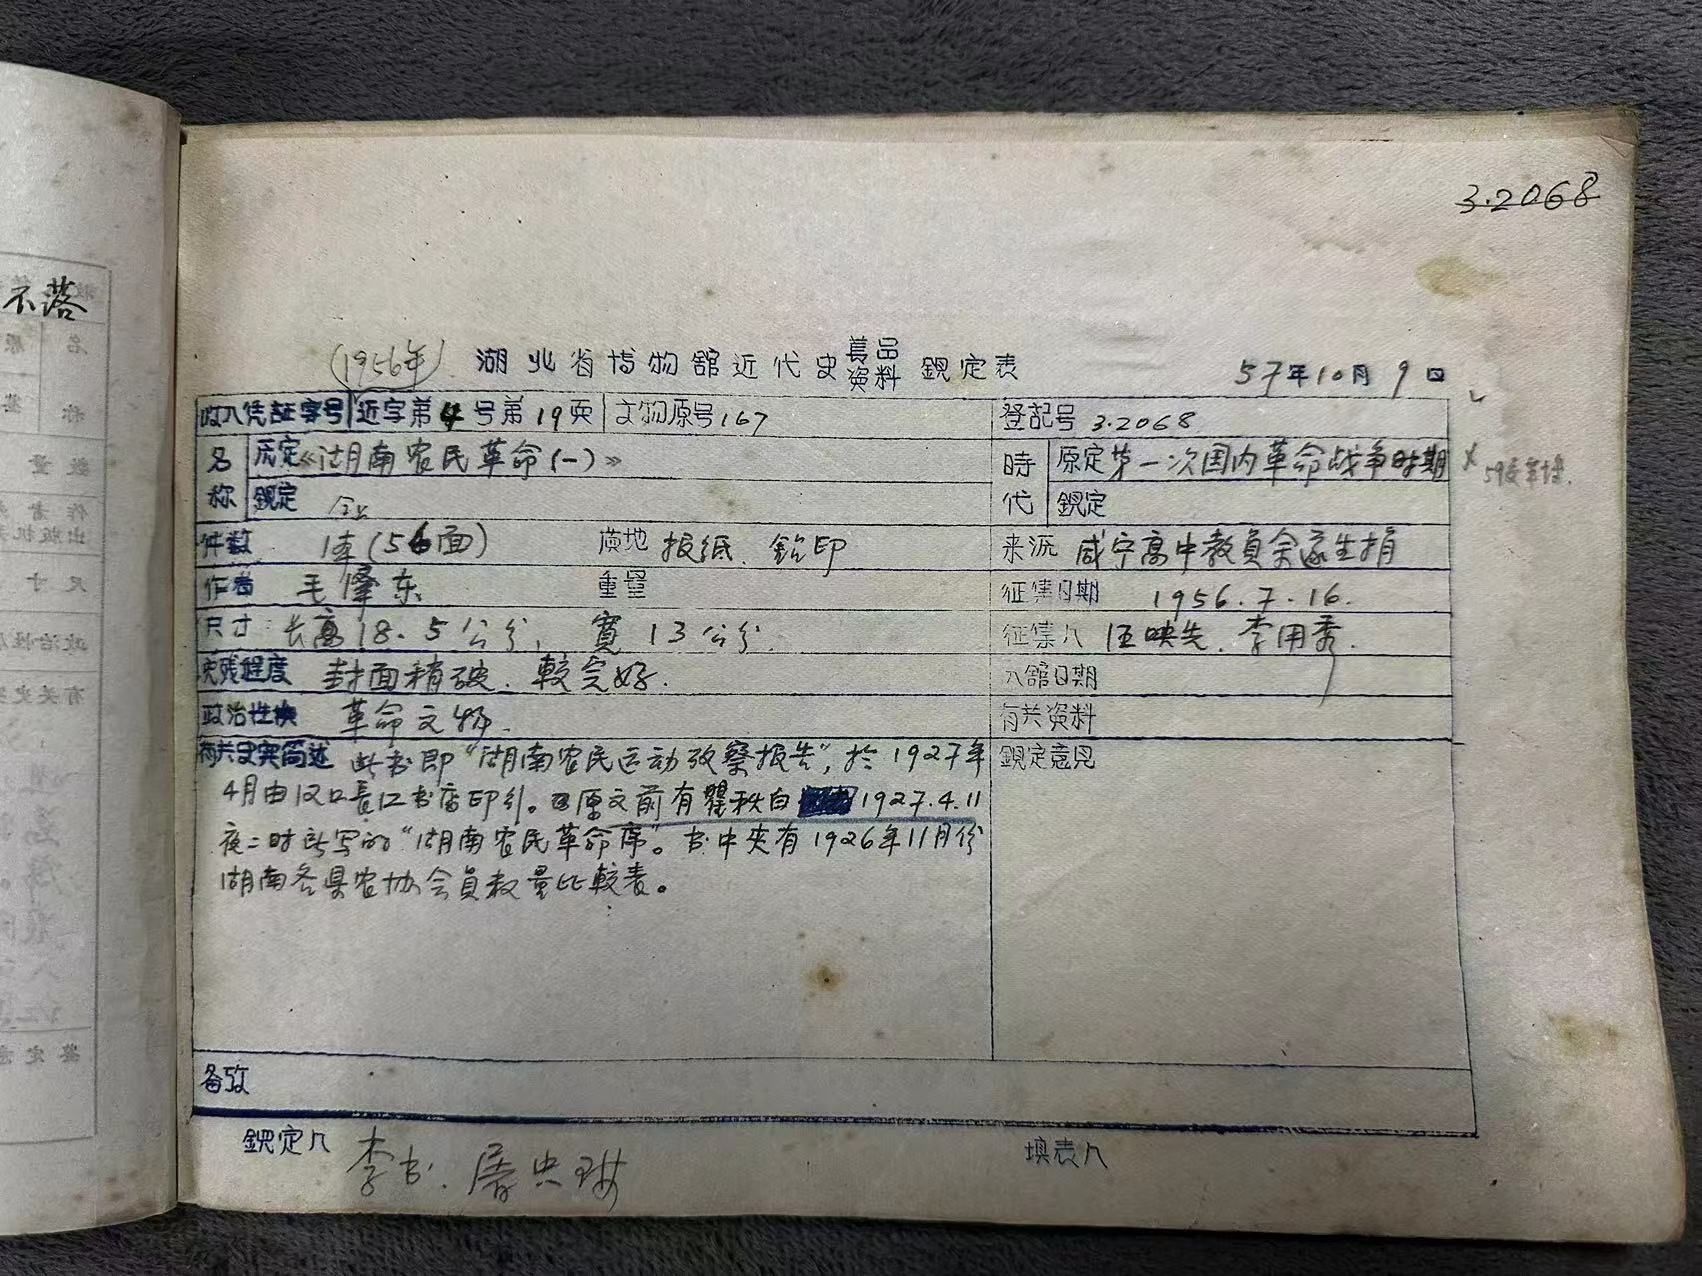 3.2068
不落
(1956年) 湖北省博物館近代史藏品資料鋧定表 57年10月9日
收入凭証字号 近字第4号第19頁 文物原号167 登記号 3.2068
名称 原定《湖南农民革命(一)》 時代 原定 第一次国内革命战争时期
鋧定 仝上 鋧定
件数 1本(56面) 质地 报纸 鉛印 来沅 咸宁高中教員余家生捐
作者 毛泽东 重量 征集日期 1956.7.16.
尺寸 长高18.5公分, 寬13公分. 征集人 汪映先、李用秀.
完残程度 封面稍破、較完好. 入舘日期
政治性質 革命文物. 有关資料
有关史实简述 此书即“湖南农民运动攷察报告”, 於1927年 鋧定意見
4月由汉口長江书店印引。原文前有瞿秋白1927.4.11
夜二时所写的“湖南农民革命序”。书中夹有1926年11月份
湖南各县农协会員数量比較表。
备攷
鋧定人 李书. 屠忠琳 填表人